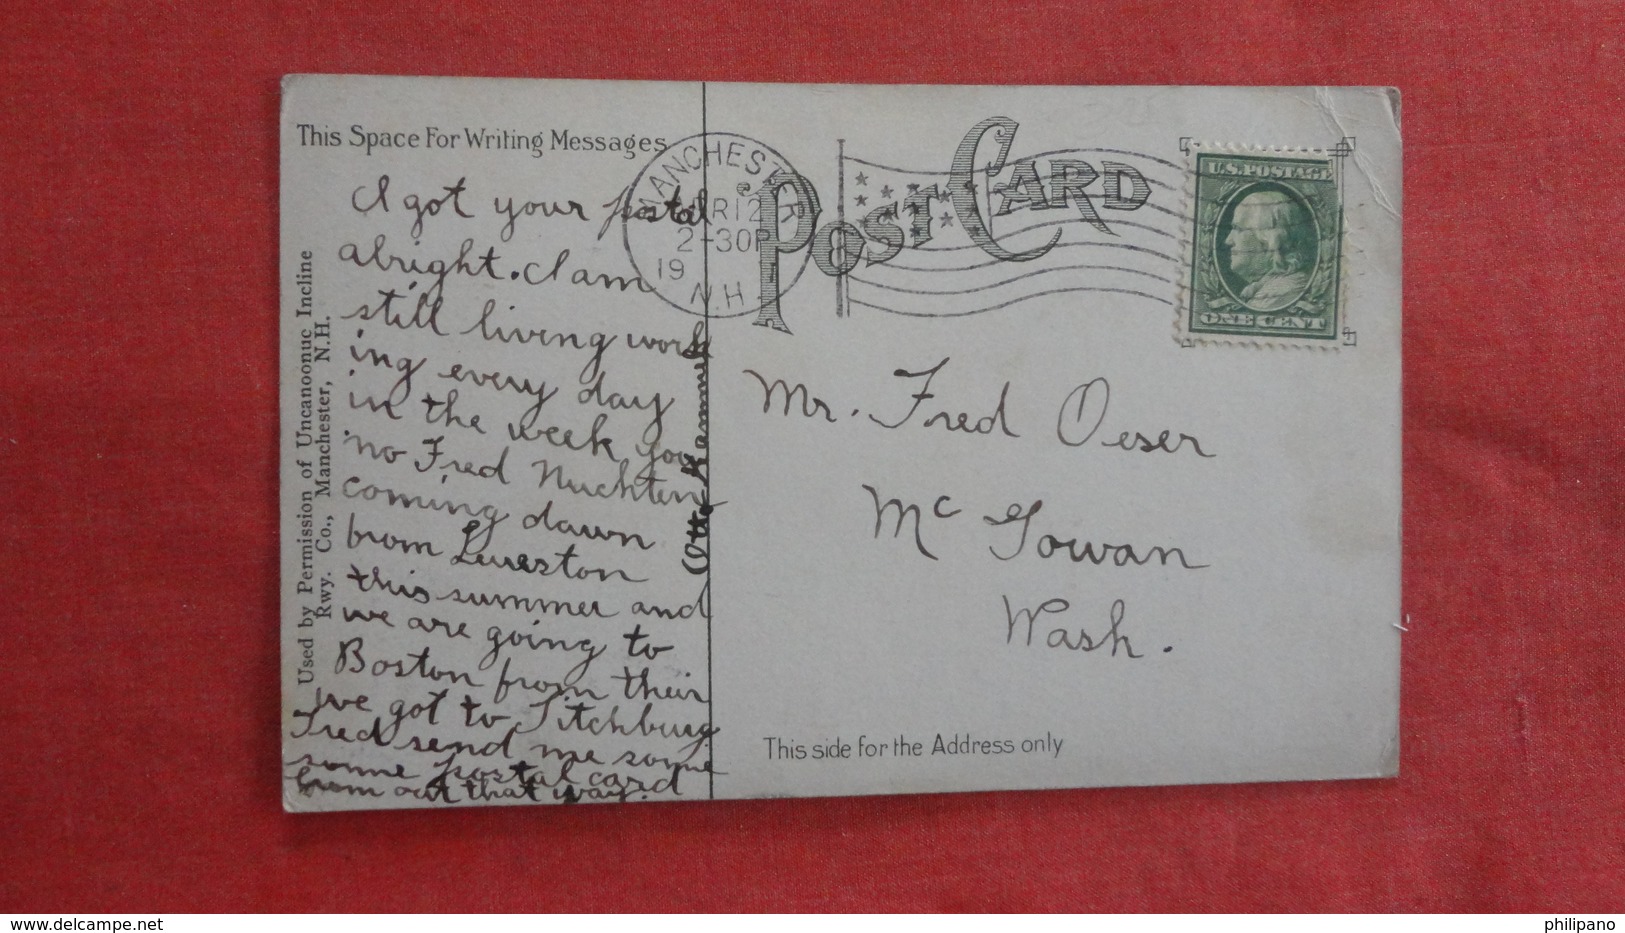 This Space For Writing Messages
I got your postal
alright. I am
still living work
ing every day
in the week you
no Fred Nuchten
coming dawn
from Leweston
this summer and
we are going to
Boston from their
we got to Fitchburg
Fred send me some
some postal card
from out that way.
Otto
Used by Permission of Uncanoonuc Incline
Rwy. Co., Manchester, N.H.
MANCHESTER
R 12
2-30P
19
N.H.
POST CARD
U.S. POSTAGE
ONE CENT
Mr. Fred Oeser
Mc Gowan
Wash.
This side for the Address only
philipano